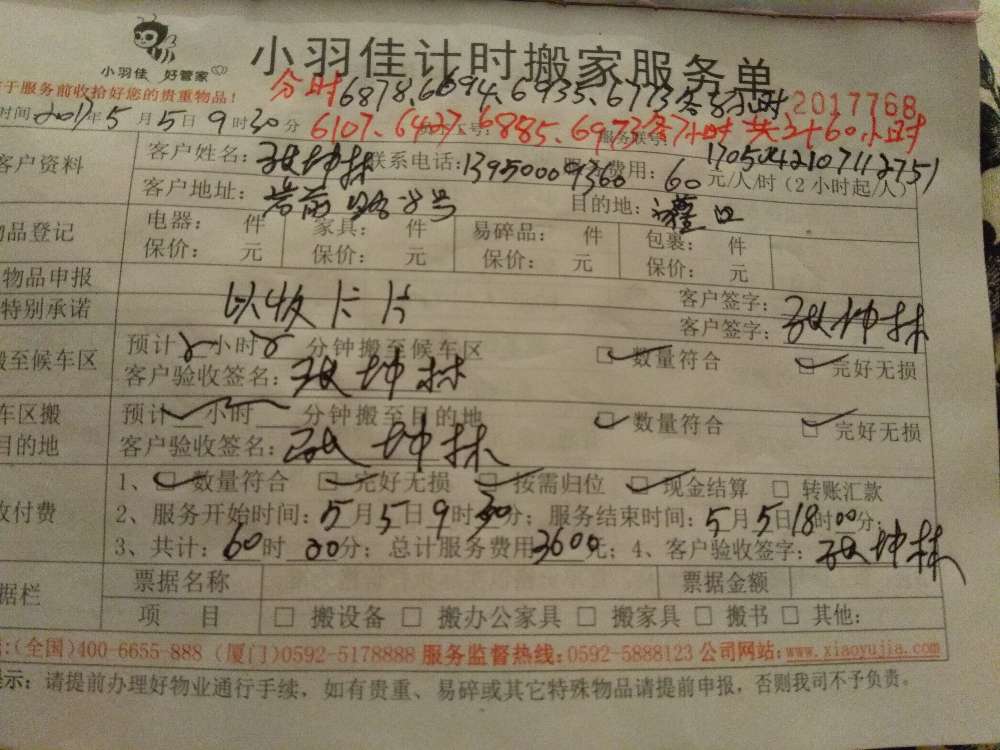 小羽佳 好管家
小羽佳计时搬家服务单
于服务前收拾好您的贵重物品!
分时6878、6694、6935、6773各8小时 2017768
时间 2017年5月5日9时30分
6107、6427、6885、6973各7小时 共计60小时
客户资料 客户姓名: 联系电话:13950009360 服务费用: 60 元/人/时(2小时起/人)
1705042107112751
客户地址: 岩前路8号 目的地: 灌口
品登记 电器: 件 家具: 件 易碎品: 件 包裹: 件
保价: 元 保价: 元 保价: 元 保价: 元
物品申报 客户签字:
特别承诺 客户签字:
搬至候车区 预计 小时 分钟搬至候车区 数量符合 完好无损
客户验收签名:
车区搬 预计 小时 分钟搬至目的地 数量符合 完好无损
目的地 客户验收签名:
1、 数量符合 完好无损 按需归位 现金结算 转账汇款
收付费 2、服务开始时间:5月5日9时30分; 服务结束时间:5月5日18时00分;
3、共计:60时00分; 总计服务费用3600元; 4、客户验收签字:
据栏 票据名称 票据金额
项 目 搬设备 搬办公家具 搬家具 搬书 其他:
:(全国)400-6655-888 (厦门)0592-5178888 服务监督热线:0592-5888123 公司网站:www.xiaoyujia.com
示: 请提前办理好物业通行手续, 如有贵重、易碎或其它特殊物品请提前申报, 否则我司不予负责。